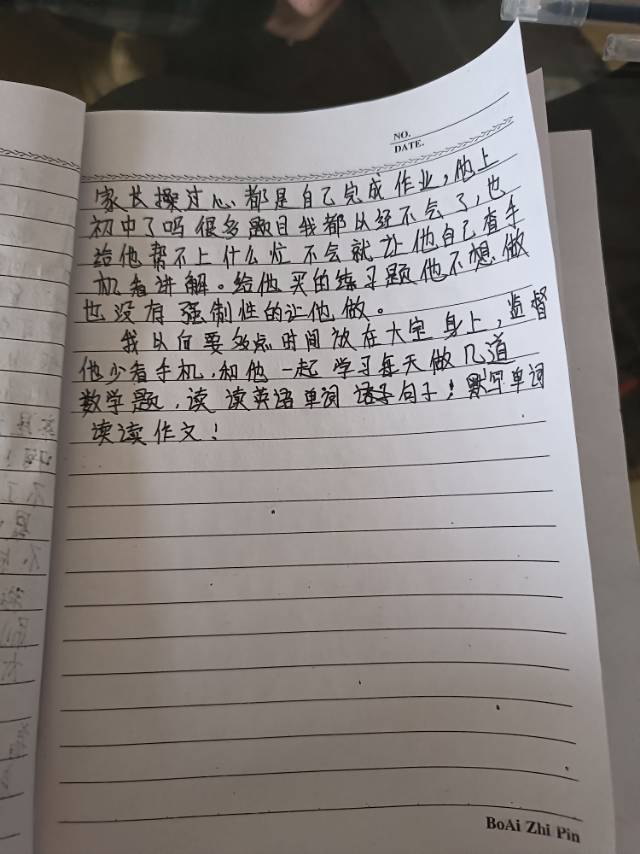 NO.
DATE.
家长操过心都是自己完成作业,他上
初中了吗很多题目我都从经不会了,也
给他帮不上什么忙不会就让他自己看手
机看讲解。给他买的练习题他不想做
也没有强制性的让他做。
我以向要多点时间放在大宝身上,监督
他少看手机,和他一起学习每天做几道
数学题,读读英语单词 句子;默写单词
读读作文!
BoAi Zhi Pin